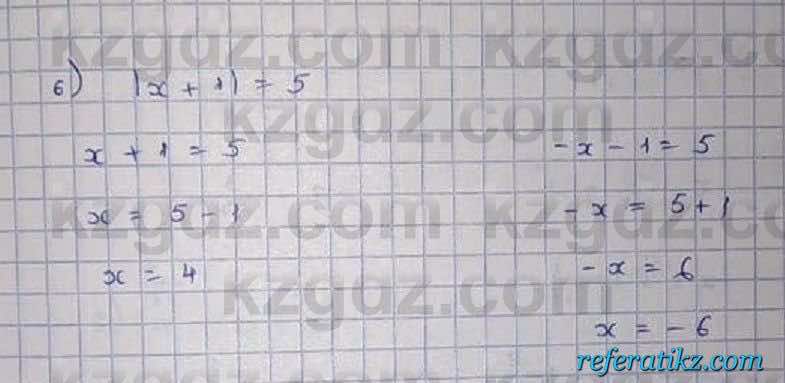 kzgdz.com kzgdz.com
б) |x + 1| = 5
kzgdz.com
x + 1 = 5
-x - 1 = 5
kzgdz.com kzgdz.com
x = 5 - 1
-x = 5 + 1
x = 4
-x = 6
kzgdz.com
x = -6
kzgdz.com kzgdz.com
referatikz.com